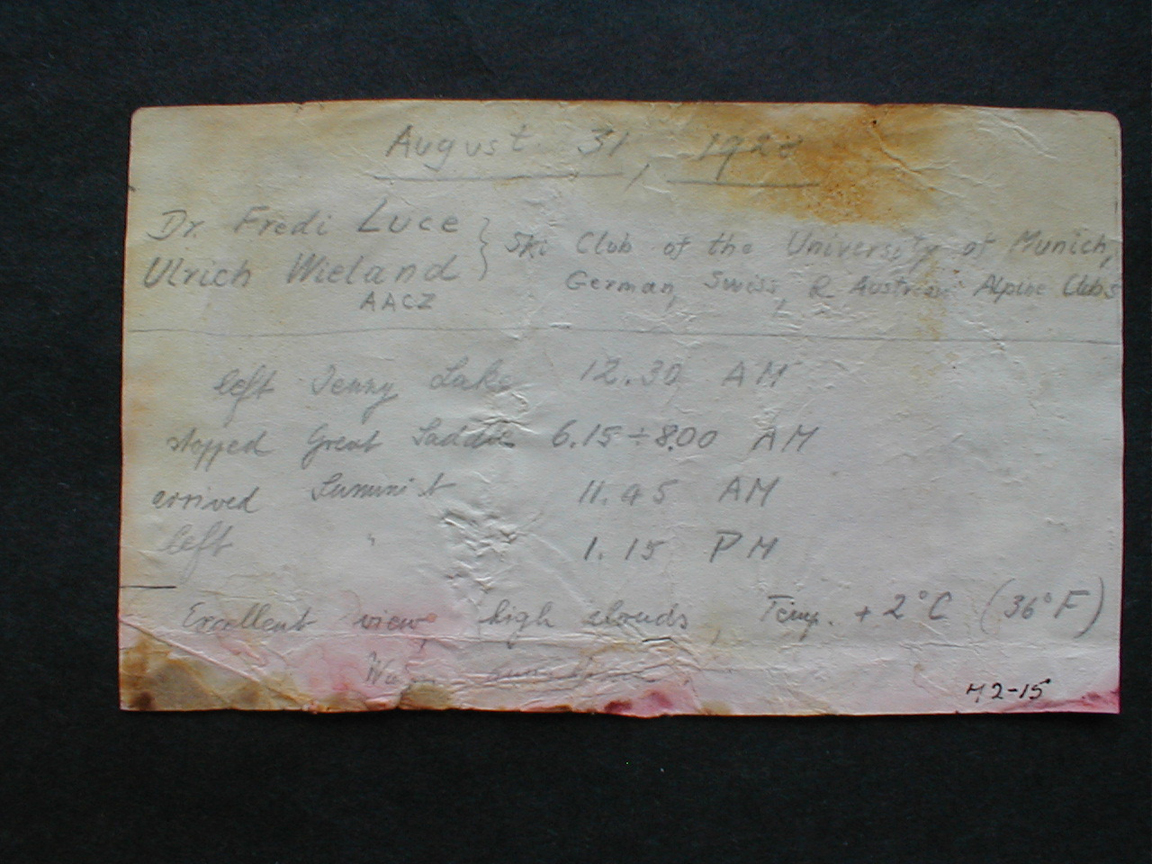 August 31, 1928
Dr. Fredi Luce } Ski Club of the University of Munich,
Ulrich Wieland German, Swiss, & Austrian Alpine Clubs
AACZ
left Jenny Lake 12.30 AM
stopped Great Saddle 6.15 ÷ 8.00 AM
arrived Summit 11.45 AM
left " 1.15 PM
Excellent view, high clouds, Temp. + 2°C (36°F)
Warm sunshine
M2-15